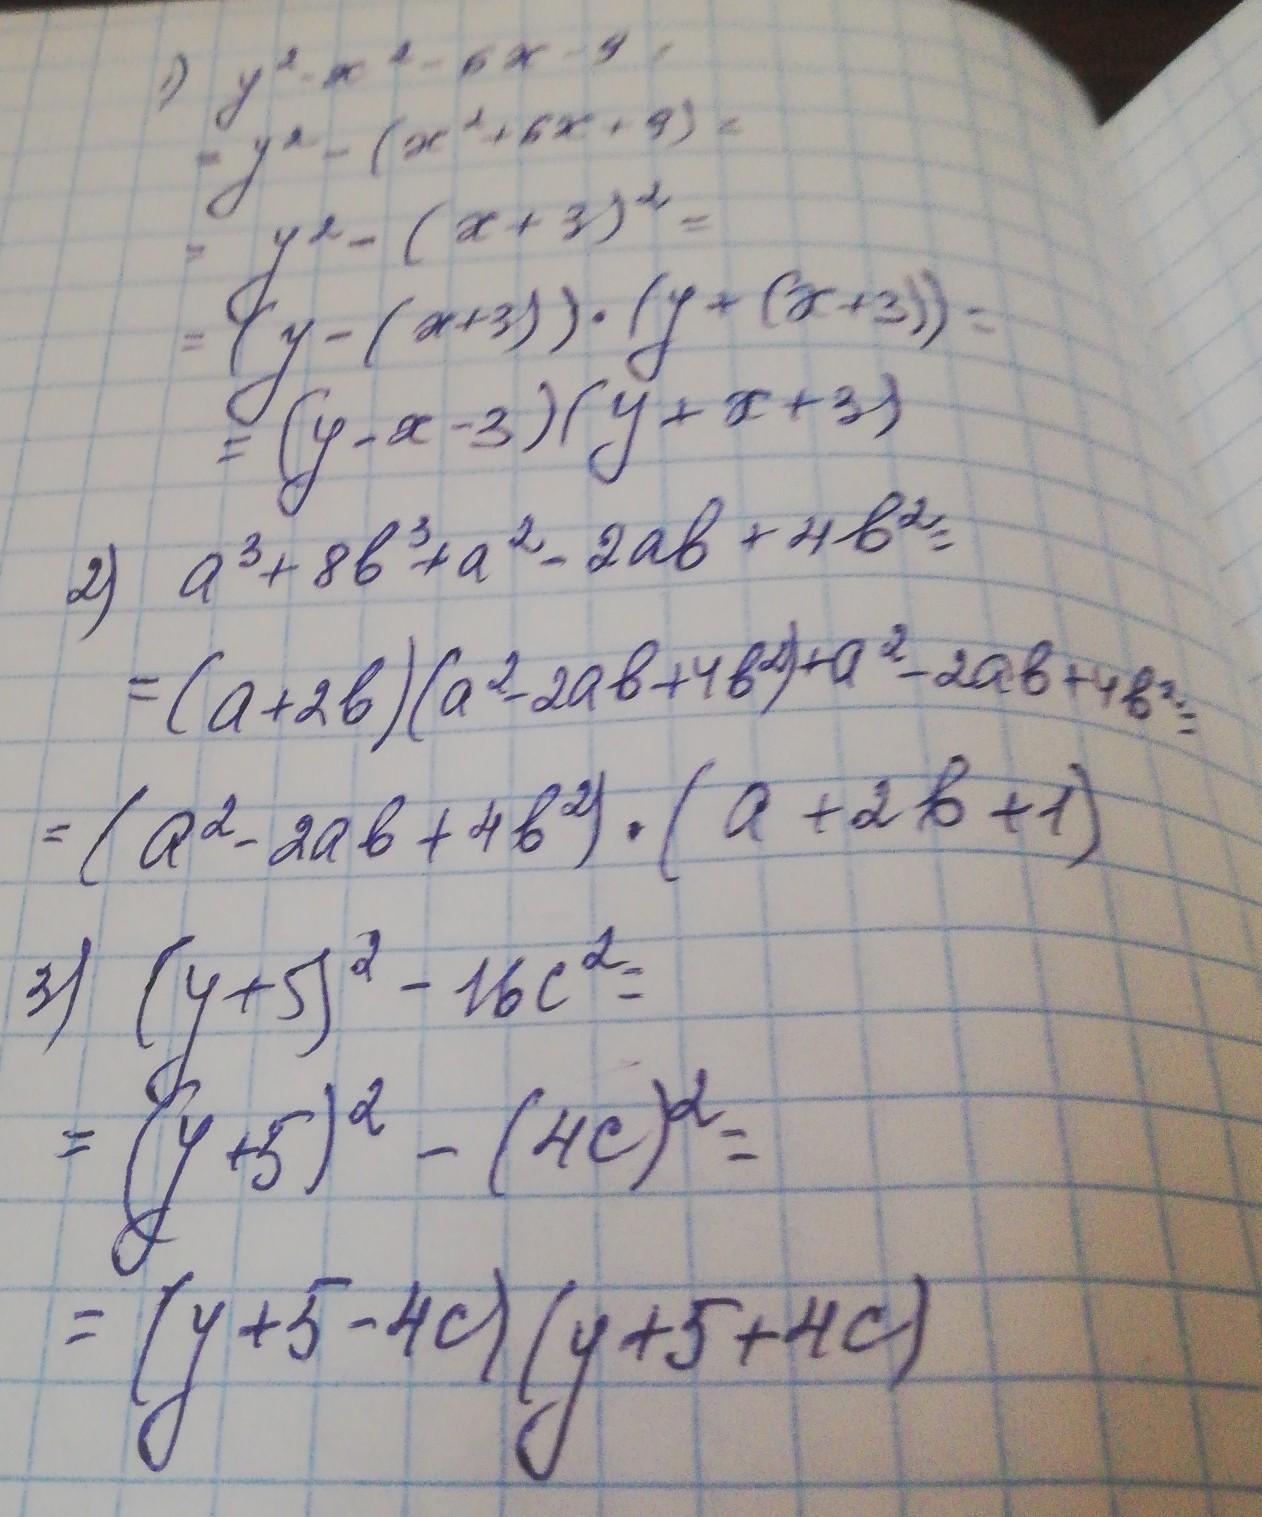 1) y² - x² - 6x - 9 =
= y² - (x² + 6x + 9) =
= y² - (x + 3)² =
= (y - (x+3)) · (y + (x+3)) =
= (y - x - 3)(y + x + 3)
2) a³ + 8b³ + a² - 2ab + 4b² =
= (a + 2b)(a² - 2ab + 4b²) + a² - 2ab + 4b² =
= (a² - 2ab + 4b²) · (a + 2b + 1)
3) (y + 5)² - 16c² =
= (y + 5)² - (4c)² =
= (y + 5 - 4c)(y + 5 + 4c)